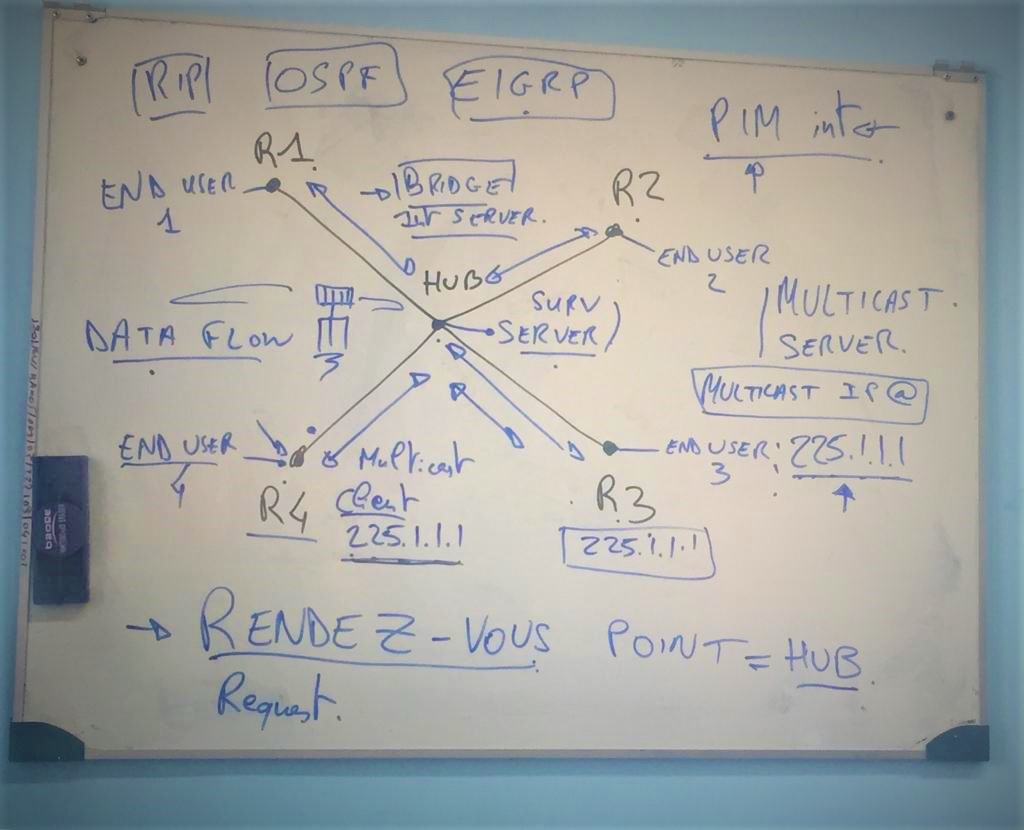 RIP OSPF EIGRP
PIM inter
R1
END USER
1
BRIDGE
INT SERVER.
R2
END USER
2
HUB
SURV
SERVER
DATA FLOW
3
MULTICAST
SERVER.
MULTICAST IP @
END USER
4
R4
Multicast
Client
225.1.1.1
END USER : 225.1.1.1
3
R3
225.1.1.1
RENDEZ-VOUS POINT = HUB.
Request.